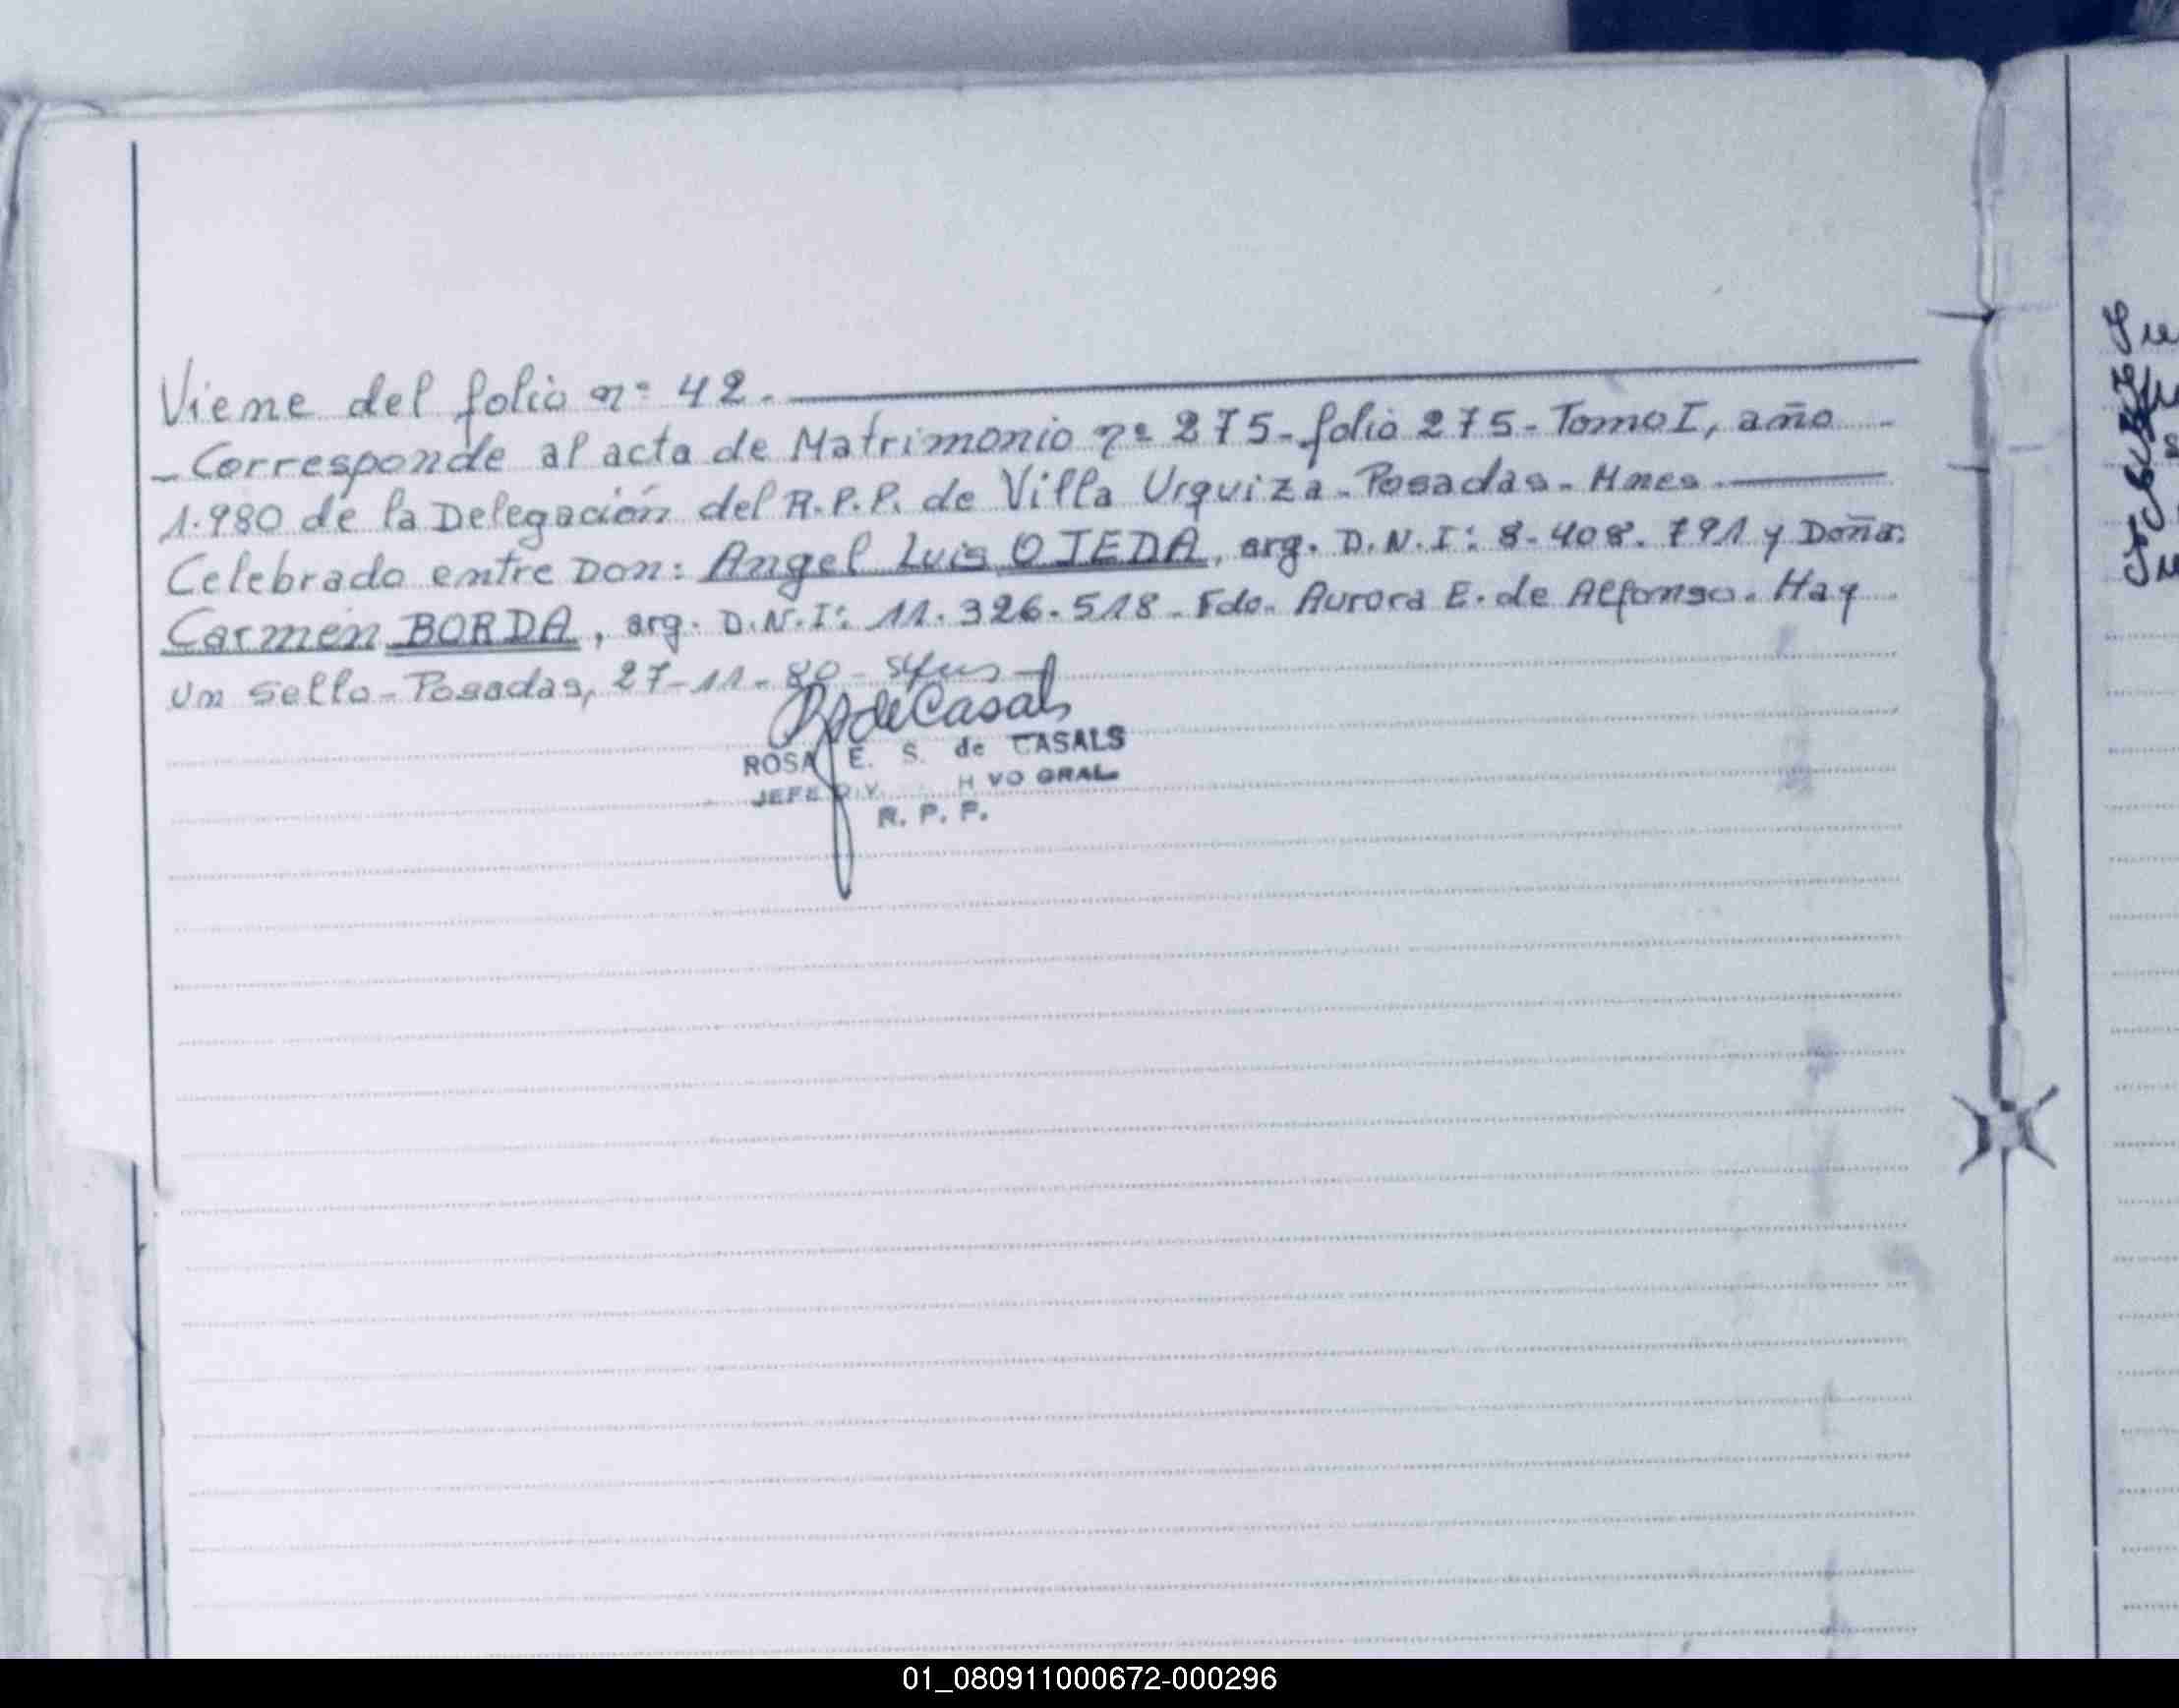 Viene del folio nº 42.
- Corresponde al acta de Matrimonio nº 275 - folio 275 - Tomo I, año
1.980 de la Delegación del R.P.P. de Villa Urquiza - Posadas - Mnes
Celebrado entre Don: Angel Luis OJEDA, arg. D.N.I: 8-408.791 y Doña:
Carmen BORDA, arg. D.N.I: 11.326.518 - Fdo. Aurora E. de Alfonso. Hay
un sello - Posadas, 27-11-80 -
de Casals
ROSA E. S. de CASALS
JEFE DIV. H VO GRAL
R. P. P.
01_080911000672-000296